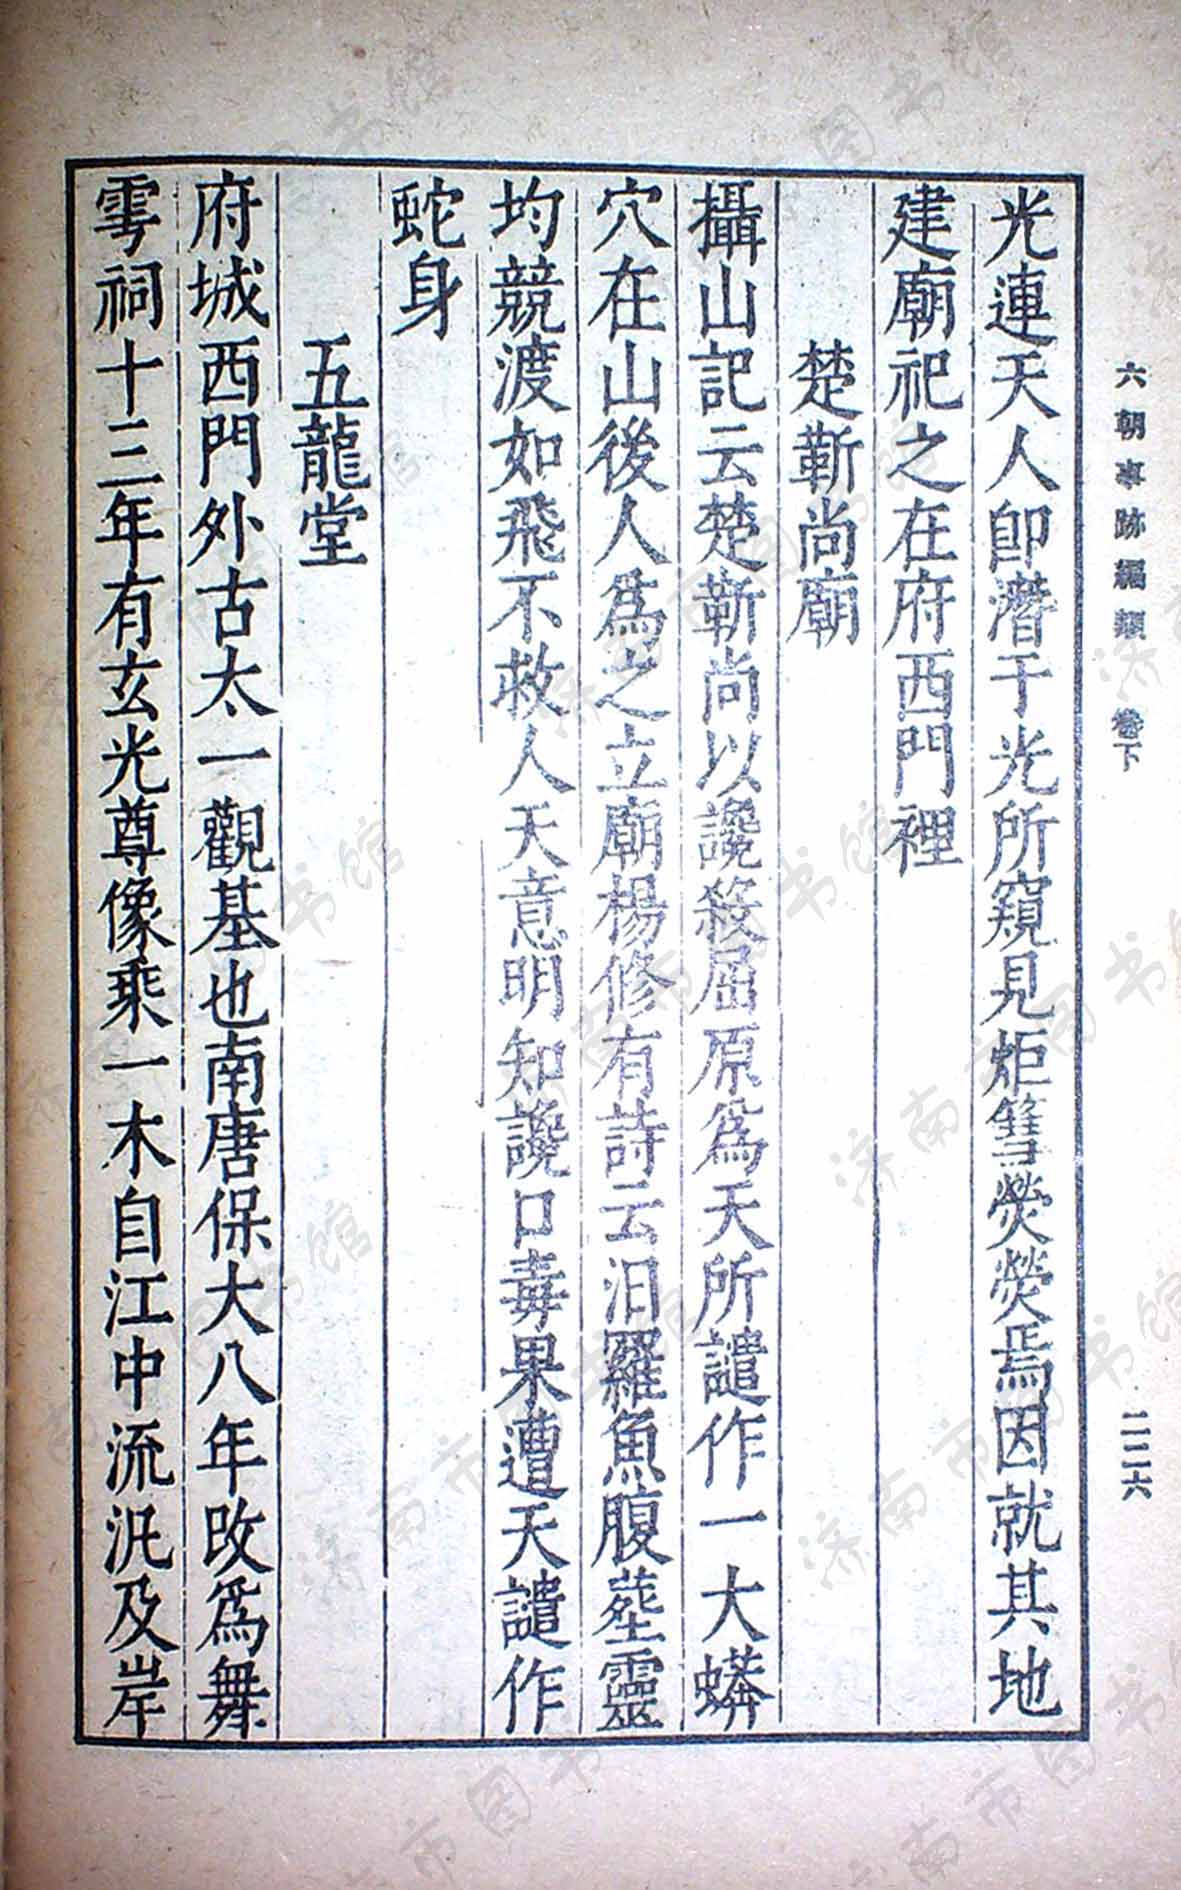 六朝事跡編類　卷下
二二六
光連天人即潛于光所窺見炬篲熒熒焉因就其地
建廟祀之在府西門裡
楚靳尚廟
攝山記云楚靳尚以讒殺屈原為天所譴作一大蟒
穴在山後人為之立廟楊修有詩云汨羅魚腹葬靈
均競渡如飛不救人天意明知讒口毒果遭天譴作
蛇身
五龍堂
府城西門外古太一觀基也南唐保大八年改為舞
雩祠十三年有玄光尊像乘一木自江中流汎及岸
济南市图书馆